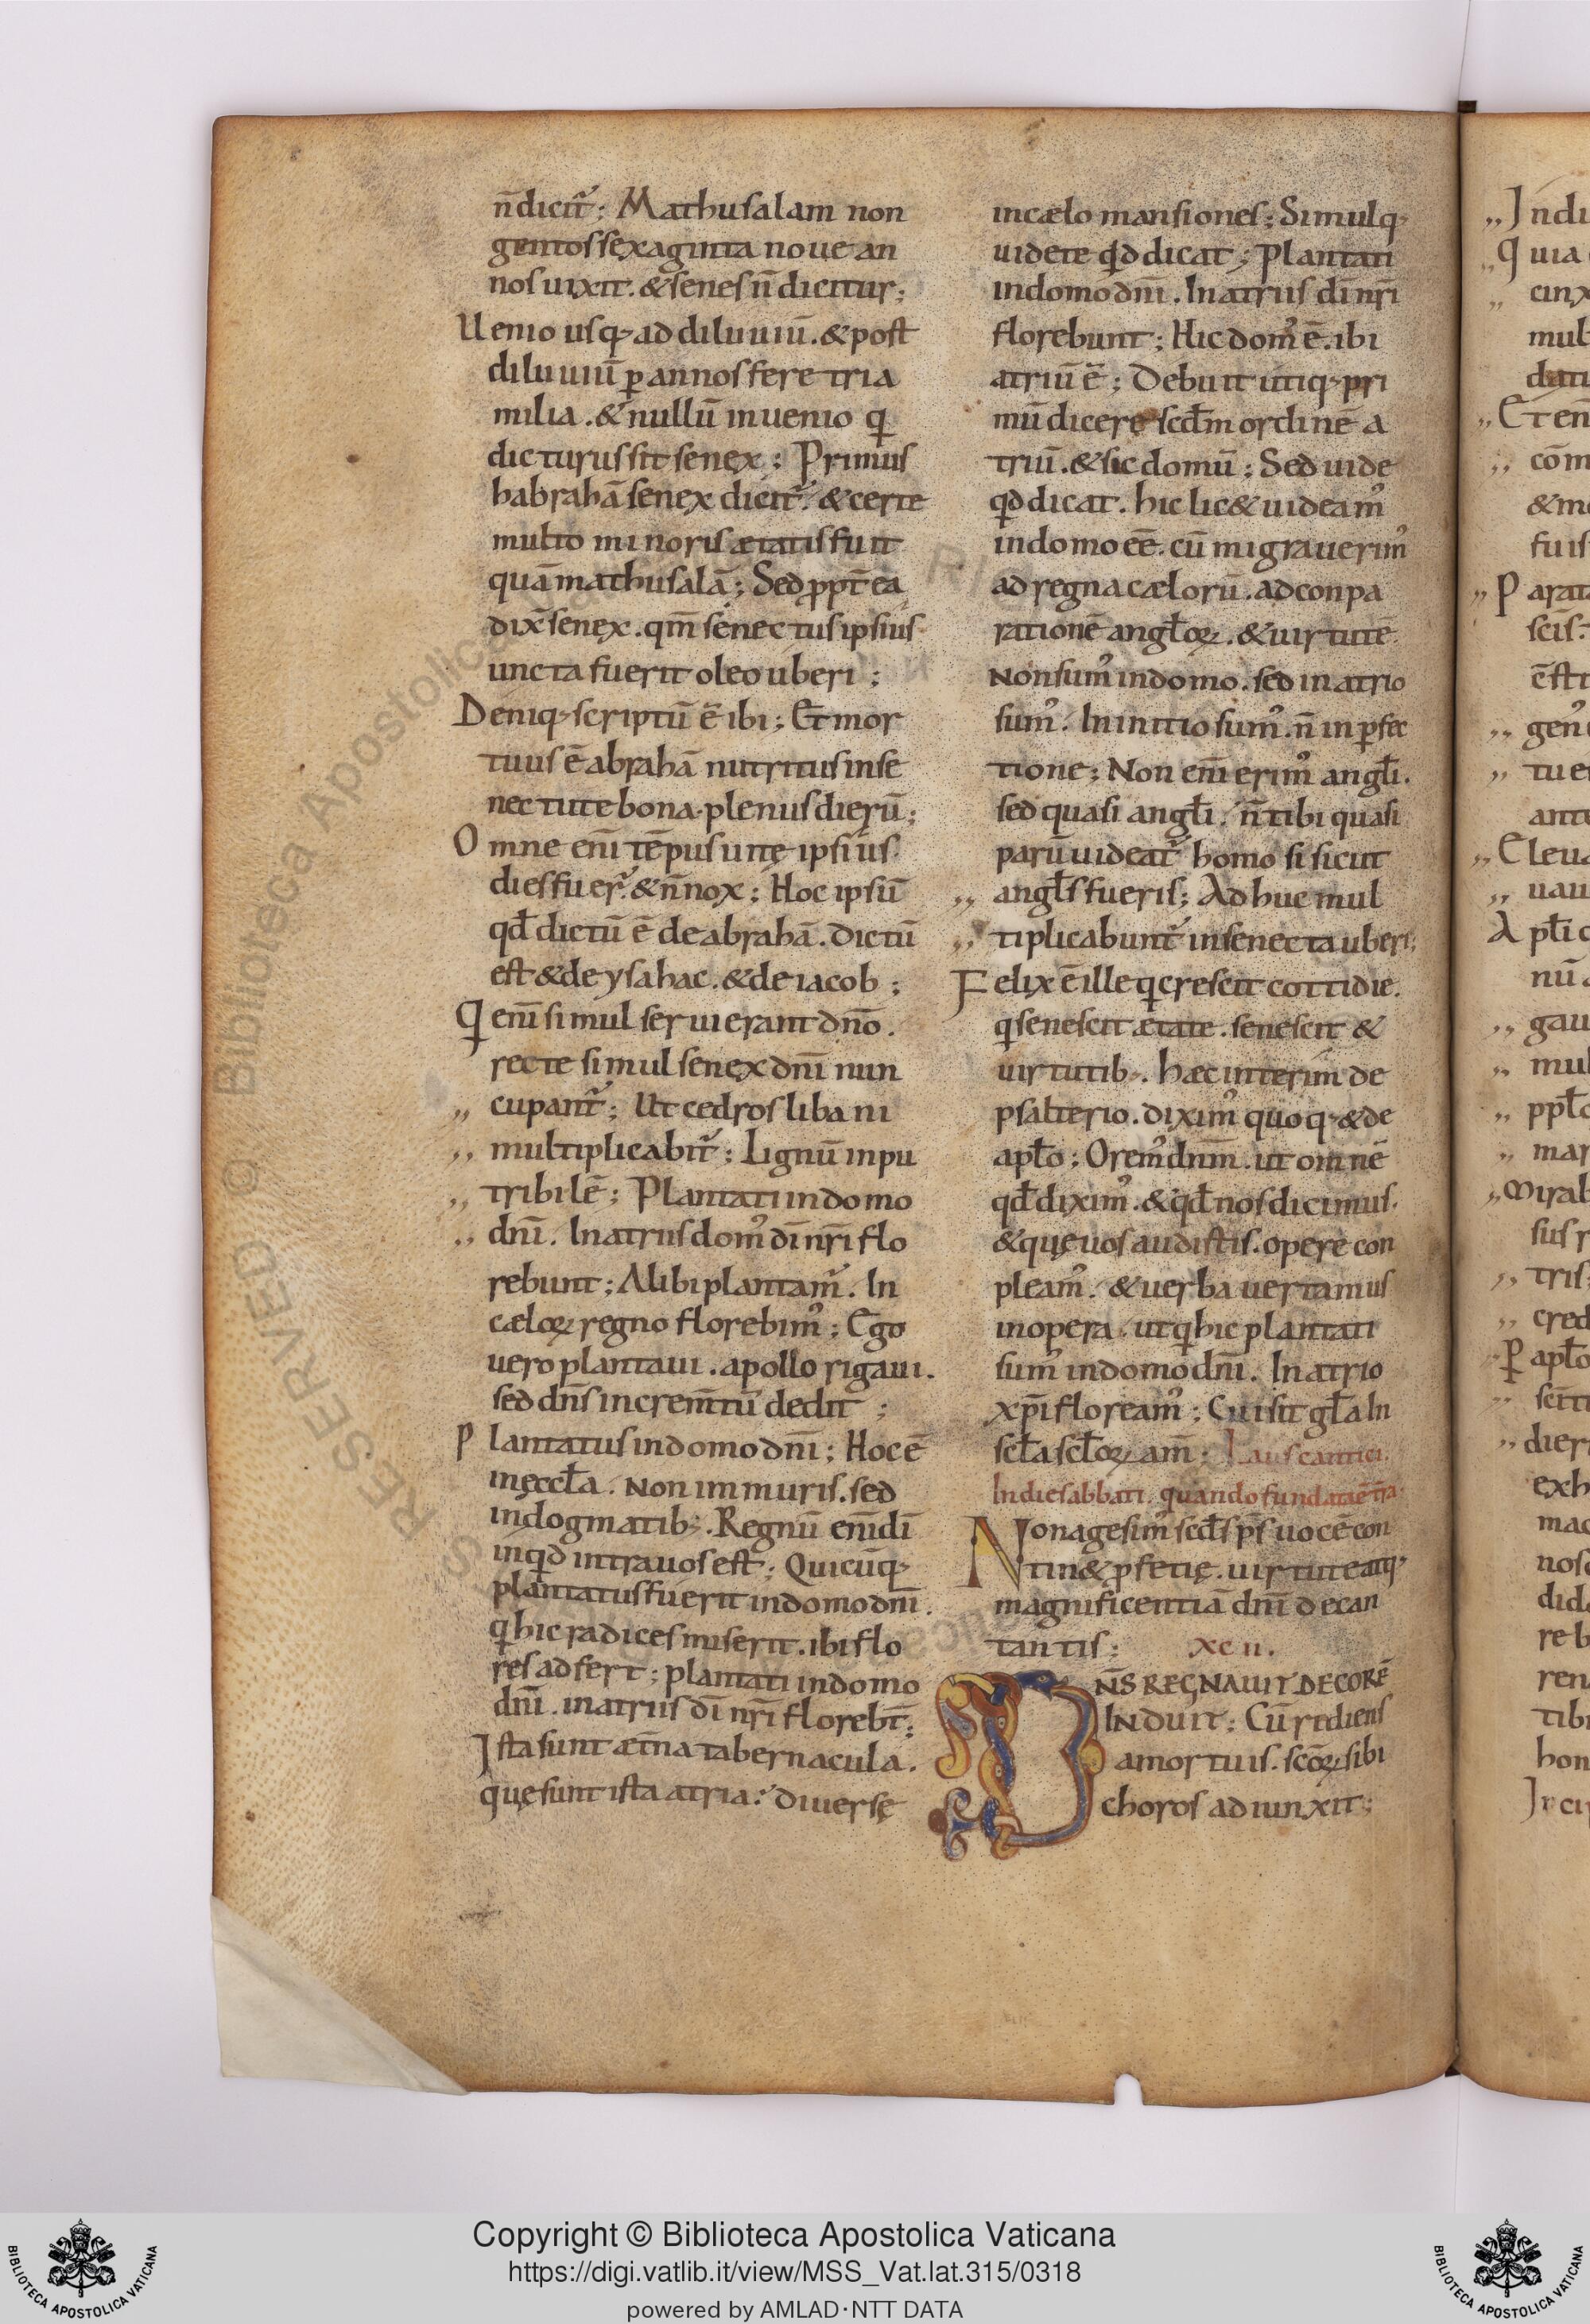 n̄ dicit̃; Mathusalam non
gentos sexaginta noue an
nos uixit. & senes n̄ dicitur;
Uenio usq; ad diluuiū. & post
diluuiū p annos fere tria
milia. & nullū inuenio q
dicturus sit senex; Primus
habrahā senex dicit̃. & certe
multo minoris ætatis fuit
quā mathusalā; Sed ppt̄ ea
dix̄ senex. qm̄ senectus ipsius
uncta fuerit oleo uberi;
Deniq; scriptū ē ibi; Et mor
tuus ē abrahā nutritus in se
nectute bona. plenus dierū;
Omne eni̅ tēpus uitę ipsius
dies fuer̃. & n̄ nox; Hoc ipsū
qđ dictū ē de abrahā. dictū
est & de ysahac. & de iacob;
Q eni̅ simul seruierant dn̄o.
recte simul senex dn̄i nun
cupant̃; Ut cedros libani
multiplicabit̃; Lignū inpu
tribilē; Plantati in domo
dn̄i. In atriis dom᾿ dī nr̄i flo
rebunt; Alibi plantam̃. In
cæloꝝ regno florebim᾿; Ego
uero plantaui. apollo rigaui.
sed dn̄s increm̄tū dedit;
Plantatus in domo dn̄i; Hoc ē
in ęccƚa. Non in muris. sed
in dogmatib;. Regnū eni̅ dī
inqd intra uos est; Quicūq;
plantatus fuerit in domo dn̄i.
q hic radices miserit. ibi flo
res adfert; plantati in domo
dn̄i. in atriis dī nr̄i florebt̄;
Ista sunt æt̄na tabernacula.
quę sunt ista atria? diuersę
in cælo mansiones; Simulq;
uidete qd dicat; Plantati
in domo dn̄i. In atriis dī nr̄i
florebunt; Hic dom᾿ ē. ibi
atriū ē; Debuit utiq; pri
mū dicere scđm ordinē a
triū. & sic domū; Sed uide
qd dicat. hic lic& uideam᾿
in domo eē. cū migrauerim᾿
ad regna cælorū. ad conpa
rationē angƚoꝝ. & uirtutē
Non sum᾿ in domo. sed in atrio
sum᾿. In initio sum᾿. n̄ in pfec
tione; Non eni̅ erim᾿ angƚi.
sed quasi angƚi. n̄ tibi quasi
parū uideat̃ homo si sicut
angƚs fueris; Adhuc mul
tiplicabunt̃ in senecta uberi;
Felix ē ille q crescit cottidie.
q senescit ætate. senescit &
uirtutib;. Hæc interim de
psalterio. dixim᾿ quoq; & de
apƚo; Orem᾿ dn̄m. ut omnē
qđ dixim᾿. & qđ nos dicimus.
& quę uos audistis. opere con
pleam᾿. & uerba uertamus
in opera. ut q hic plantati
sum᾿ in domo dn̄i. In atrio
xp̄i floream᾿; Cui sit gƚa In
scƚa scƚoꝝ am̄; Laus cantici.
In die sabbati. quando fundata ē t̄ra.
Nonagesim᾿ scđs ps̄ uocē con
tin& pfetię. uirtutē atq;
magnificentiā dn̄i decan
tantis; xcii.
DN̄S REGNAUIT DECORĒ
INDUIT; Cū rediens
a mortuis. sc̄oꝝ sibi
choros adiunxit;
Copyright © Biblioteca Apostolica Vaticana
https://digi.vatlib.it/view/MSS_Vat.lat.315/0318
powered by AMLAD·NTT DATA
BIBLIOTECA APOSTOLICA VATICANA
BIBLIOTECA APOSTOLICA VATICANA